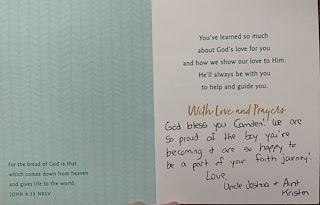 For the bread of God is that
which comes down from heaven
and gives life to the world.
JOHN 6:33 NRSV
You've learned so much
about God's love for you
and how we show our love to Him.
He'll always be with you
to help and guide you.
With Love and Prayers
God bless you Camden! We are
so proud of the boy you're
becoming & are so happy to
be a part of your faith journey!
Love,
Uncle Joshua & Aunt
Kristen